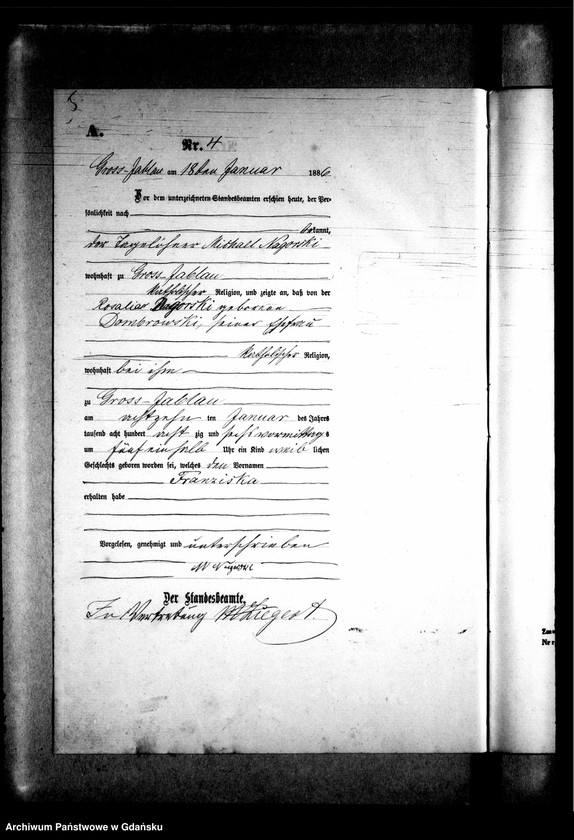 5
A.
Nr. 4
Gross-Jablau am 18ten Januar 1886
Vor dem unterzeichneten Standesbeamten erschien heute, der Per-
sönlichkeit nach
bekannt,
der Tagelöhner Michall Nagorski
wohnhaft zu Gross-Jablau
katholischer Religion, und zeigte an, daß von der
Rosalia Nagorski geborenen
Dombrowski, seiner Ehefrau
katholischer Religion,
wohnhaft bei ihm
zu Gross-Jablau
am achtzehn ten Januar des Jahres
tausend acht hundert acht zig und sechs vormittag s
um fünf ein halb Uhr ein Kind weib lichen
Geschlechts geboren worden sei, welches den Vornamen
Franziska
erhalten habe
Vorgelesen, genehmigt und unterschrieben
M Nagorski
Der Standesbeamte,
In Vertretung
Nr
Archiwum Państwowe w Gdańsku